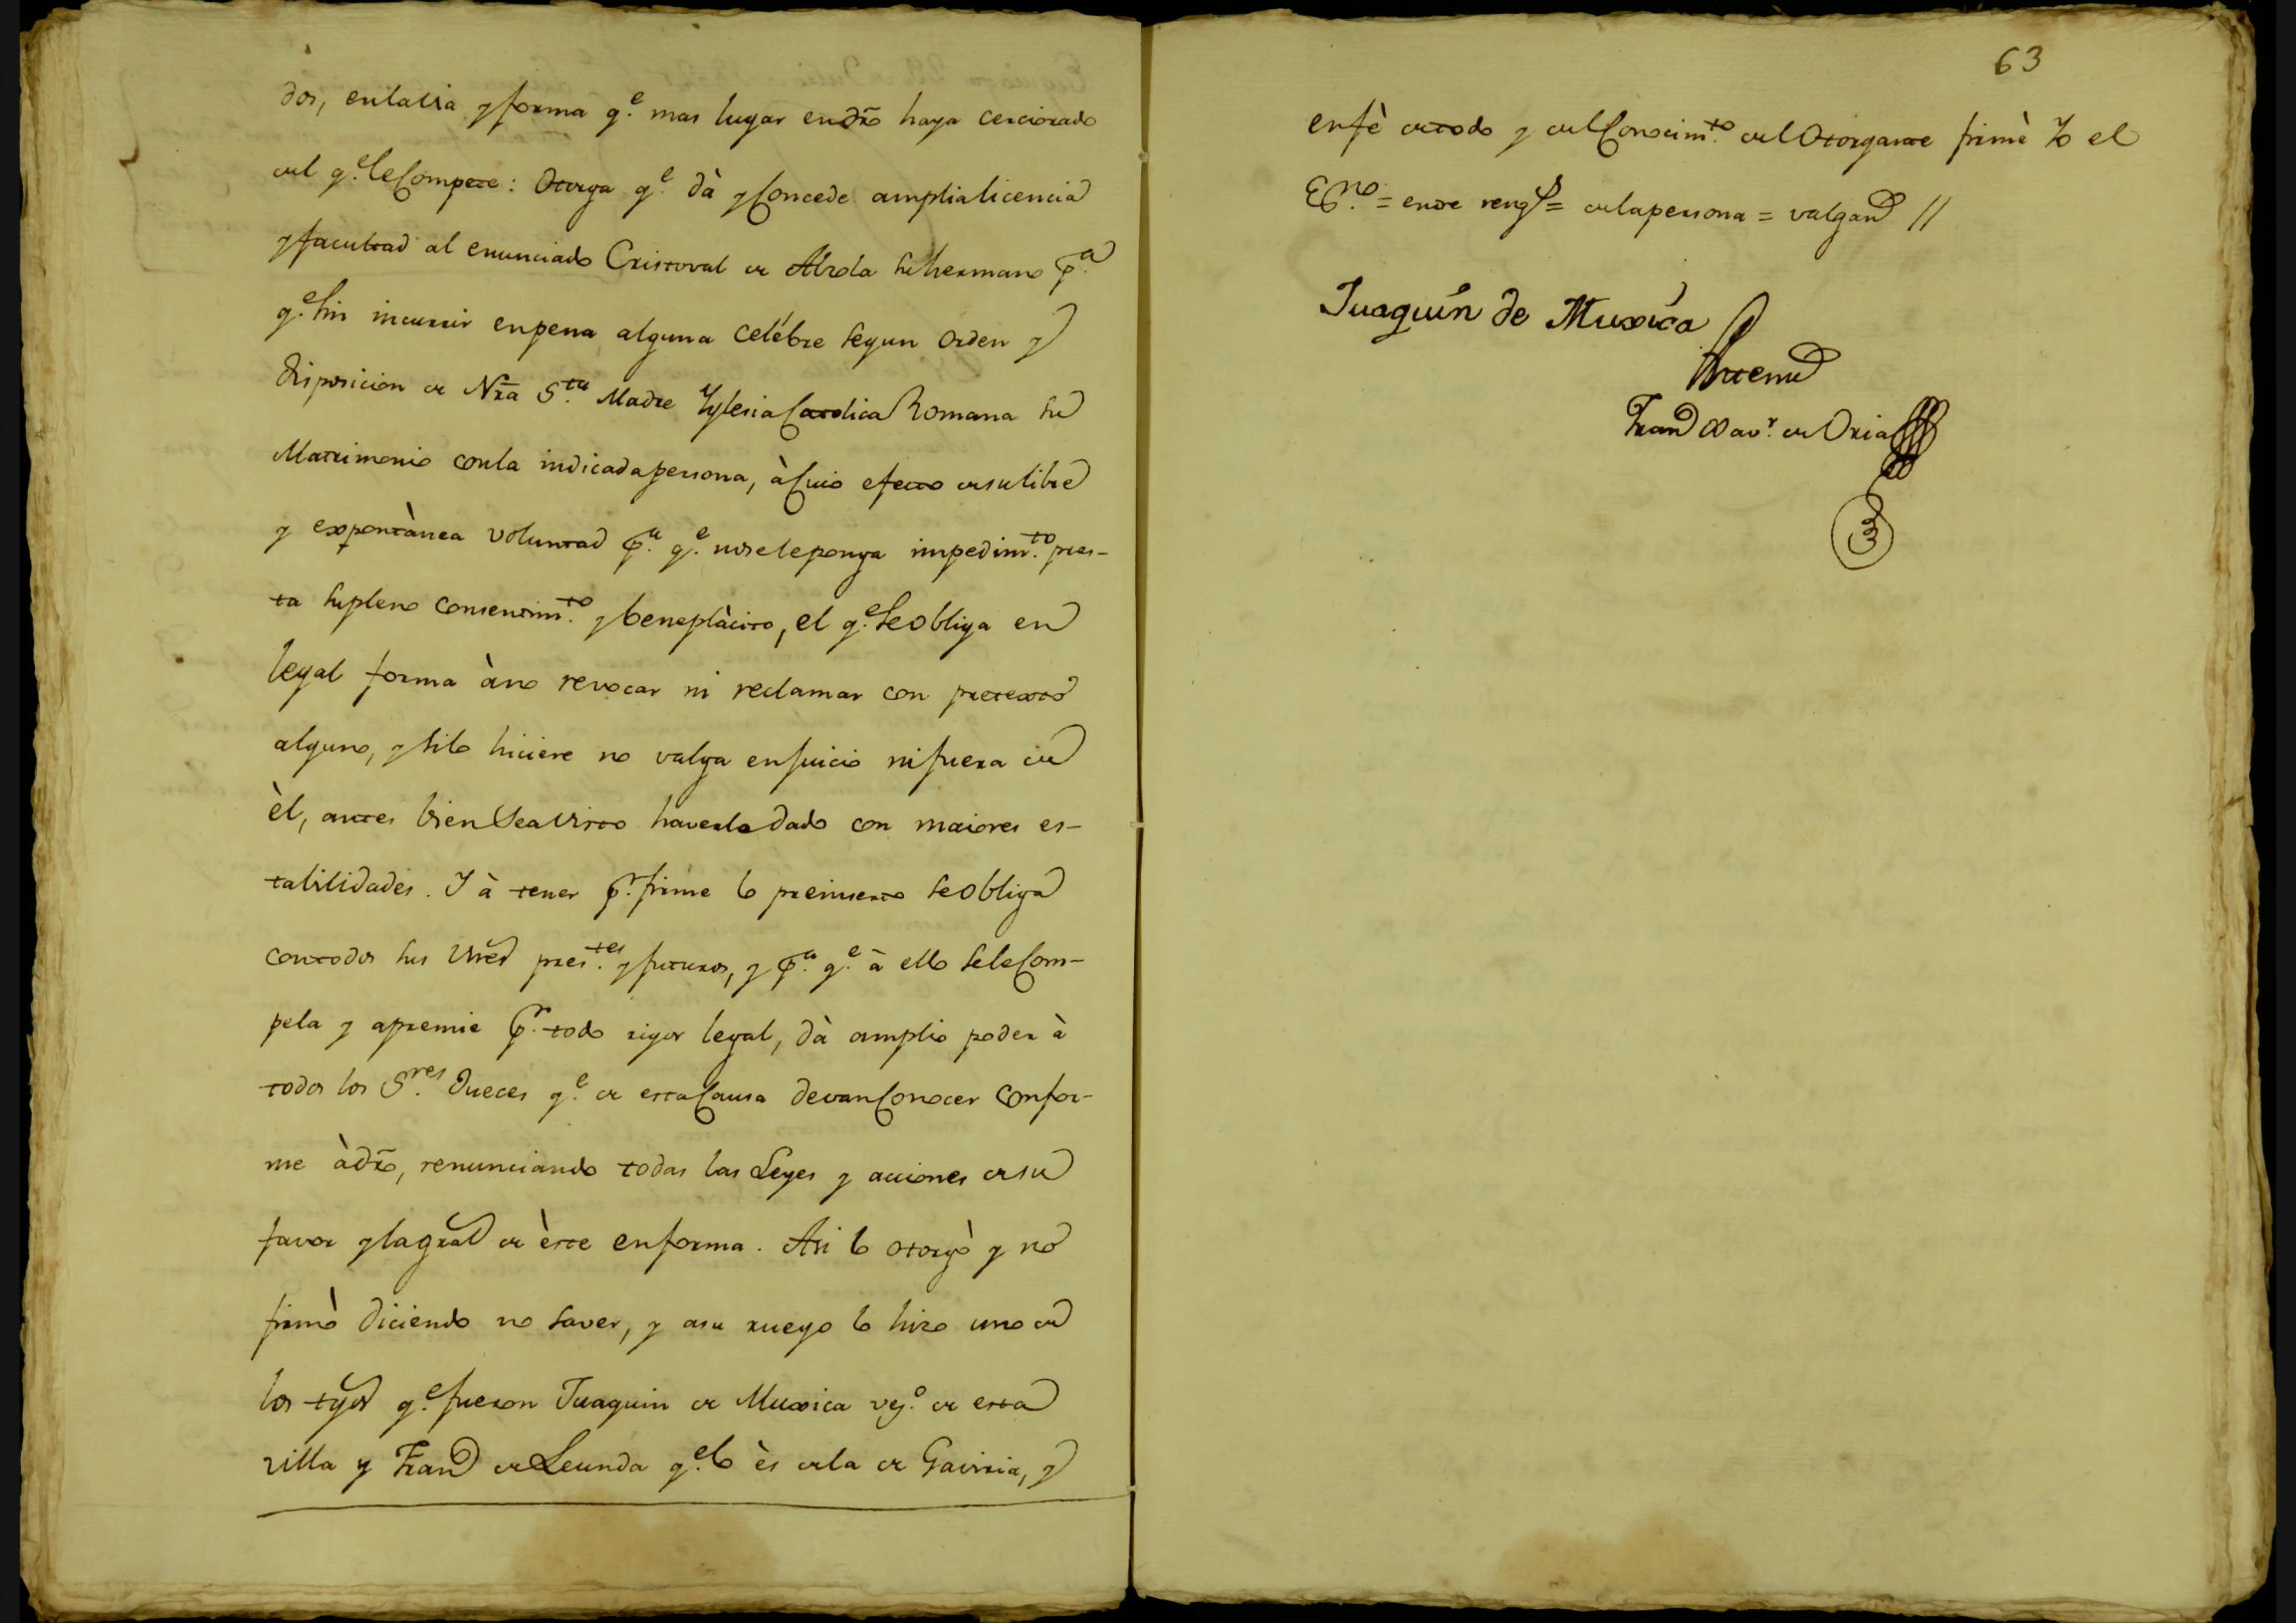 dos, en la via y forma q.e mas lugar en dro haya cerciorado
del q.e le Compete: Otorga q.e dà y Concede amplia licencia
y facultad al enunciado Cristoval de Alzola su hermano p.a
q.e sin incurrir en pena alguna celébre segun orden y
disposicion de Nra S.ta Madre Yglesia Catolica Romana su
Matrimonio con la indicada persona, à Cuio efecto de su libre
y expontànea voluntad p.a q.e no se le ponga impedim.to pres-
ta su pleno consentim.to y beneplàcito, el q.e se obliga en
legal forma à no revocar ni reclamar con pretexto
alguno, y si lo hiciere no valga en juicio ni fuera de
èl, antes bien sea visto haverlo dado con maiores es-
tabilidades. I à tener p.r firme lo preinserto se obliga
con todos sus vnes pres.tes y futuros, y p.a q.e à ello se le Com-
pela y apremie p.r todo rigor legal, dà amplio poder à
todos los S.res Jueces q.e de esta Causa devan Conocer confor-
me à dro, renunciando todas las Leyes y acciones de su
favor y la gral de èste en forma. Asi lo otorgò y no
firmò diciendo no saver, y a su ruego lo hizo uno de
los tgos q.e fueron Juaquin de Muxica vez.o de esta
villa y Fran de Leunda q.e lo ès de la de Gaviria, y
63
en fè de todo y del Conocim.to del Otorgante firmè Yo el
Es.no = entre rengs = de la persona = valgan //
Juaquin de Muxica
Antemi
Fran Xav.r de Oria